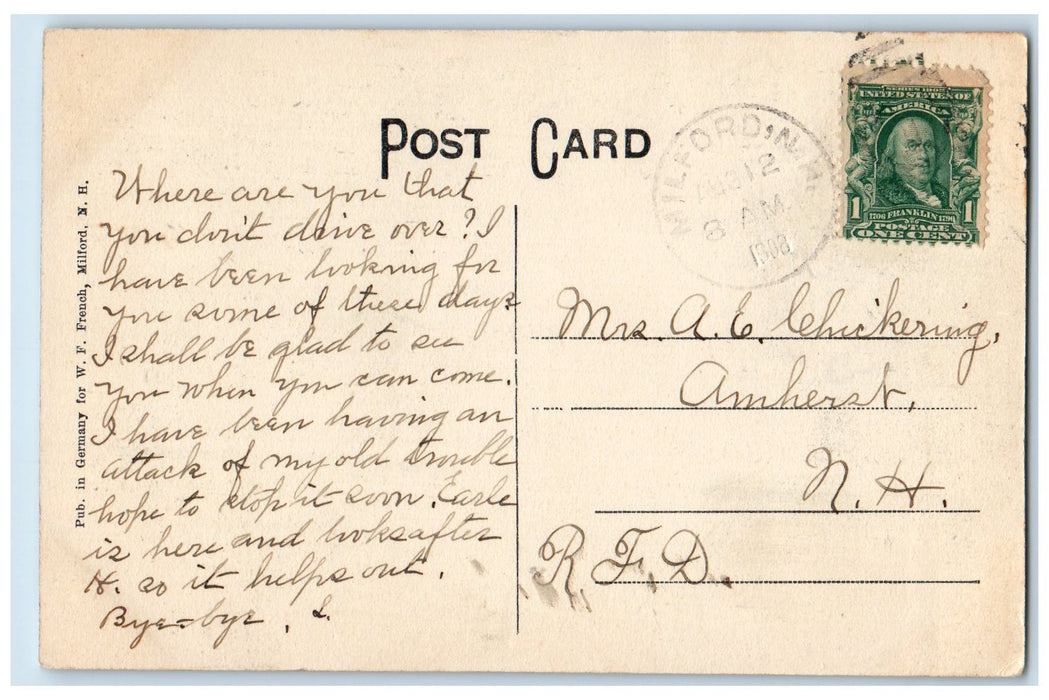 POST CARD
MILFORD, N.H.
12
8 AM
1908
SERIES 1902
UNITED STATES OF
AMERICA
1 1706 FRANKLIN 1790 1
POSTAGE
ONE CENT
Pub. in Germany for W. F. French, Milford, N. H.
Where are you that
you don't drive over? I
have been looking for
you some of these days
I shall be glad to see
you when you can come.
I have been having an
attack of my old trouble
hope to stop it soon. Earle
is here and looks after
H. so it helps out.
Bye-bye.
Mrs. A. E. Chickering,
Amherst,
N. H.
R. F. D.